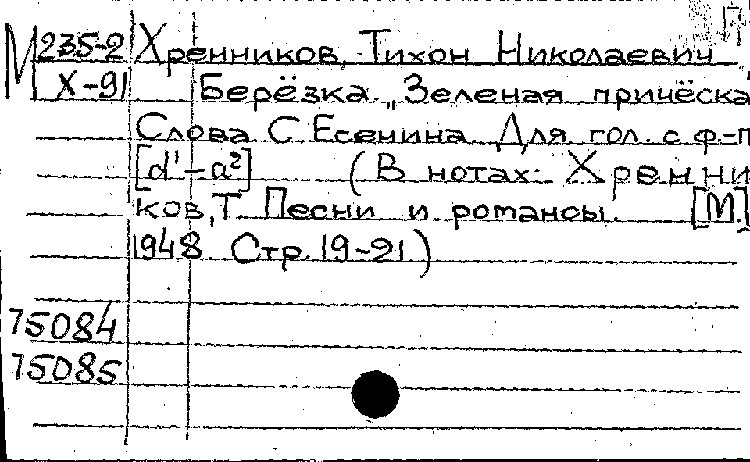 М 235-2 Хренников, Тихон Николаевич
Х-91 Берёзка „Зеленая причёска
Слова С. Есенина. Для гол. с ф-п
[d¹-a²] (В нотах: Хренни
ков, Т. Песни и романсы. [М.]
1948 Стр. 19-21)
75084
75085